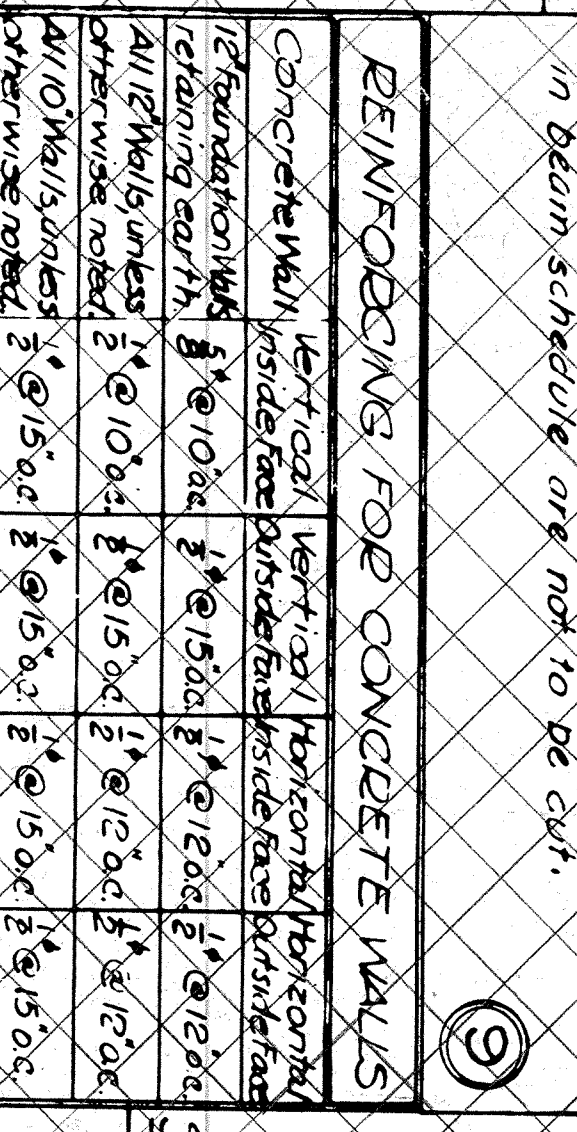 in beam schedule are not to be cut.
9
REINFORCING FOR CONCRETE WALLS
Concrete Wall Vertical Inside Face Vertical Outside Face Horizontal Inside Face Horizontal Outside Face
12" Foundation Walls retaining earth 5/8"ϕ @ 10" o.c. 1/2"ϕ @ 15" o.c. 1/2"ϕ @ 12" o.c. 1/2"ϕ @ 12" o.c.
All 12" Walls, unless otherwise noted. 1/2"ϕ @ 10" o.c. 1/2"ϕ @ 15" o.c. 1/2"ϕ @ 12" o.c. 1/2"ϕ @ 12" o.c.
All 10" Walls, unless otherwise noted. 1/2"ϕ @ 15" o.c. 1/2"ϕ @ 15" o.c. 1/2"ϕ @ 15" o.c. 1/2"ϕ @ 15" o.c.